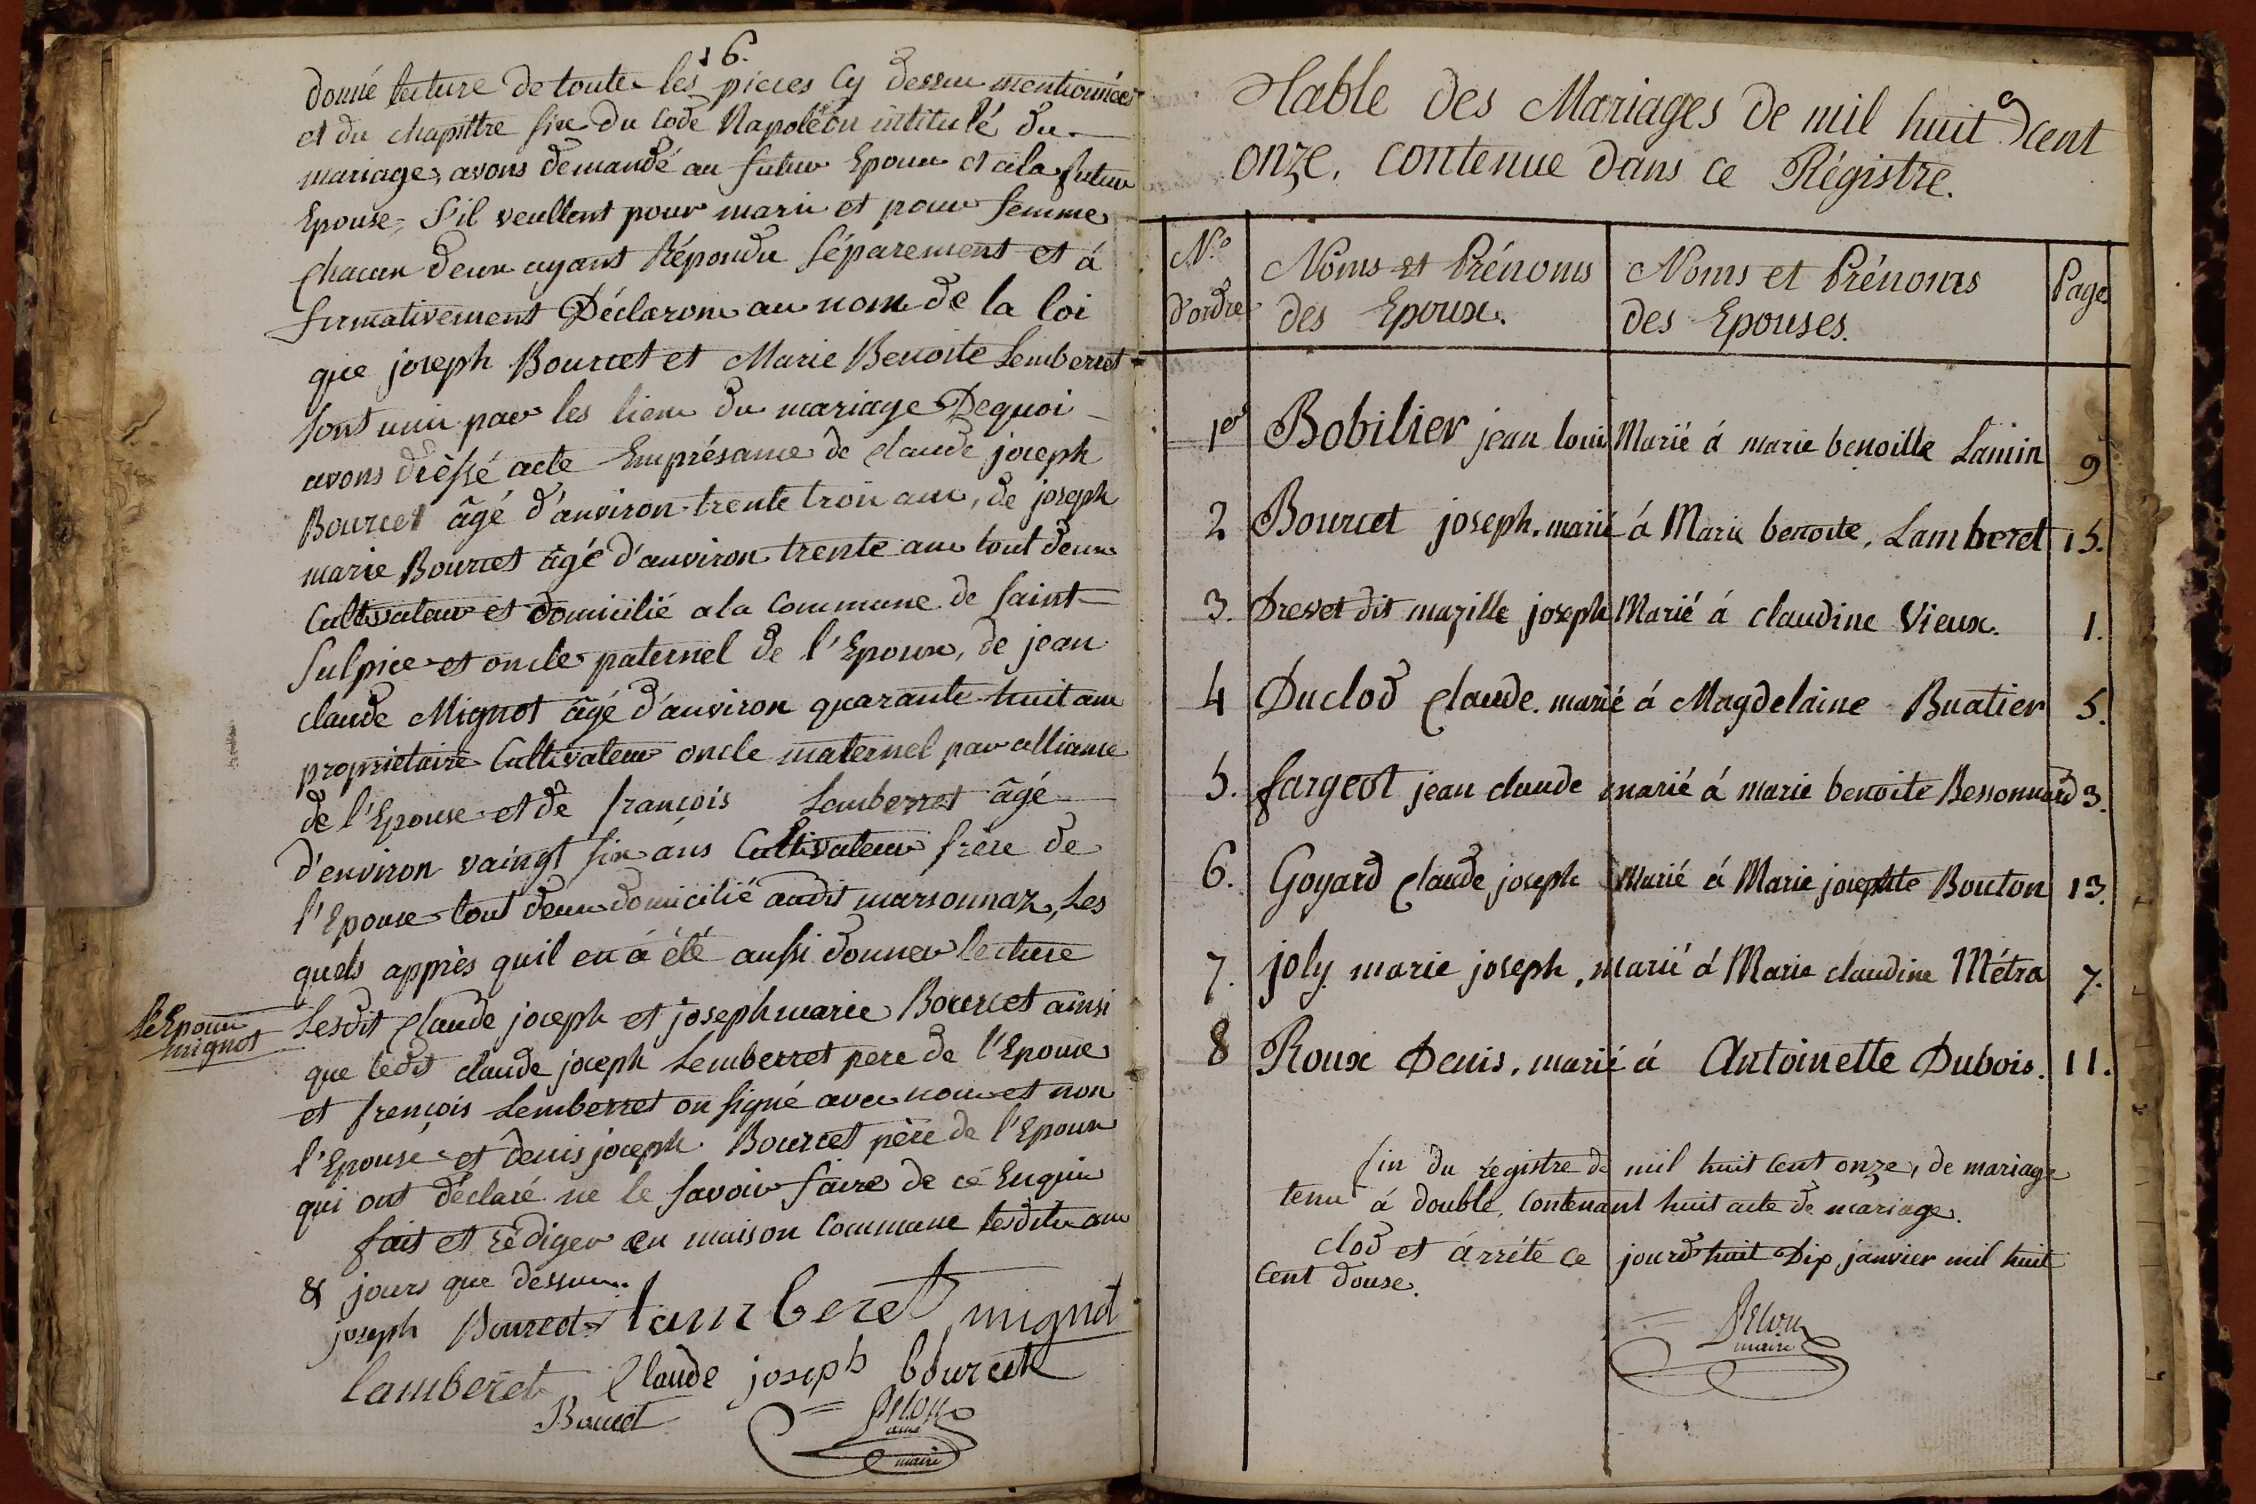 16.
donné lecture de toute les pieces cy dessu mentionnées
et du chapittre six du Code Napoléon intitulé du
mariage, avons demandé au futur Epoux et ala future
Epouse, s'il veullent pour marie et pour femme
chacun deux ayant Répondu séparement et á
firmativement Déclarons au nom de la loi
que joseph Bourcet et Marie Benoite Lemberret
sont unis par les liens du mariage Dequoi
avons dressé acte Emprésance de claude joseph
Bourcet âgé d'anviron trente trois ans, de joseph
marie Bourcet âgé d'anviron trente ans tout deux
Cultivateur et domicilié a la Commune de saint
Sulpice et oncle paternel de l'Epoux, de jean
claude Mignot âgé d'anviron quarante huit ans
proprietaire Cultivateur oncle maternel par alliance
de l'Epouse et de françois Lemberret âgé
d'environ vaingt six ans Cultivateur frère de
l'Epouse tout deux domicilié audit marsonnaz, Les
quels apprès quil en á été aussi donner lecture
l'Epoux
mignot
Lesdit claude joseph et joseph marie Bourcet ainsi
que ledit claude joseph Lemberret pere de l'Epouse
et françois Lemberret on signé avec nous et non
l'Epouse et denis joseph Bourcet père de l'Epoux
qui ont déclaré ne le savoir faire de ce Enquis
fait et rédiger en maison Commune lesdits ans
& jours que dessus..
joseph Bourcet lamberet mignot
lamberet Claude joseph bourcet
Bourcet
maire
Table des Mariages de mil huit cent
onze, contenue dans ce Régistre.
N.o d'ordre
Noms et Prénoms des Epoux.
Noms et Prénoms des Epouses.
Page
1er Bobilier jean loui Marié á marie benoitte Lamin 9
2 Bourcet joseph. marié á Marie benoite, Lamberet 15.
3. Drevet dit mazille joseph Marié á claudine Vieux. 1.
4 Duclod Claude. marié á Magdelaine Buatier 5.
5. fargeot jean claude marié á marie benoite Bessonnard 3.
6. Goyard Claude joseph Marié á Marie josephte Bouton 13.
7. joly marie joseph, marié á Marie claudine Métra 7.
8 Roux Denis, marié á Antoinette Dubois. 11.
fin du régistre de mil huit Cent onze, de mariage
tenu á double, Contenant huit acte de mariage.
clod et árrété ce jourd'huit Dix janvier mil huit
Cent douse.
maire